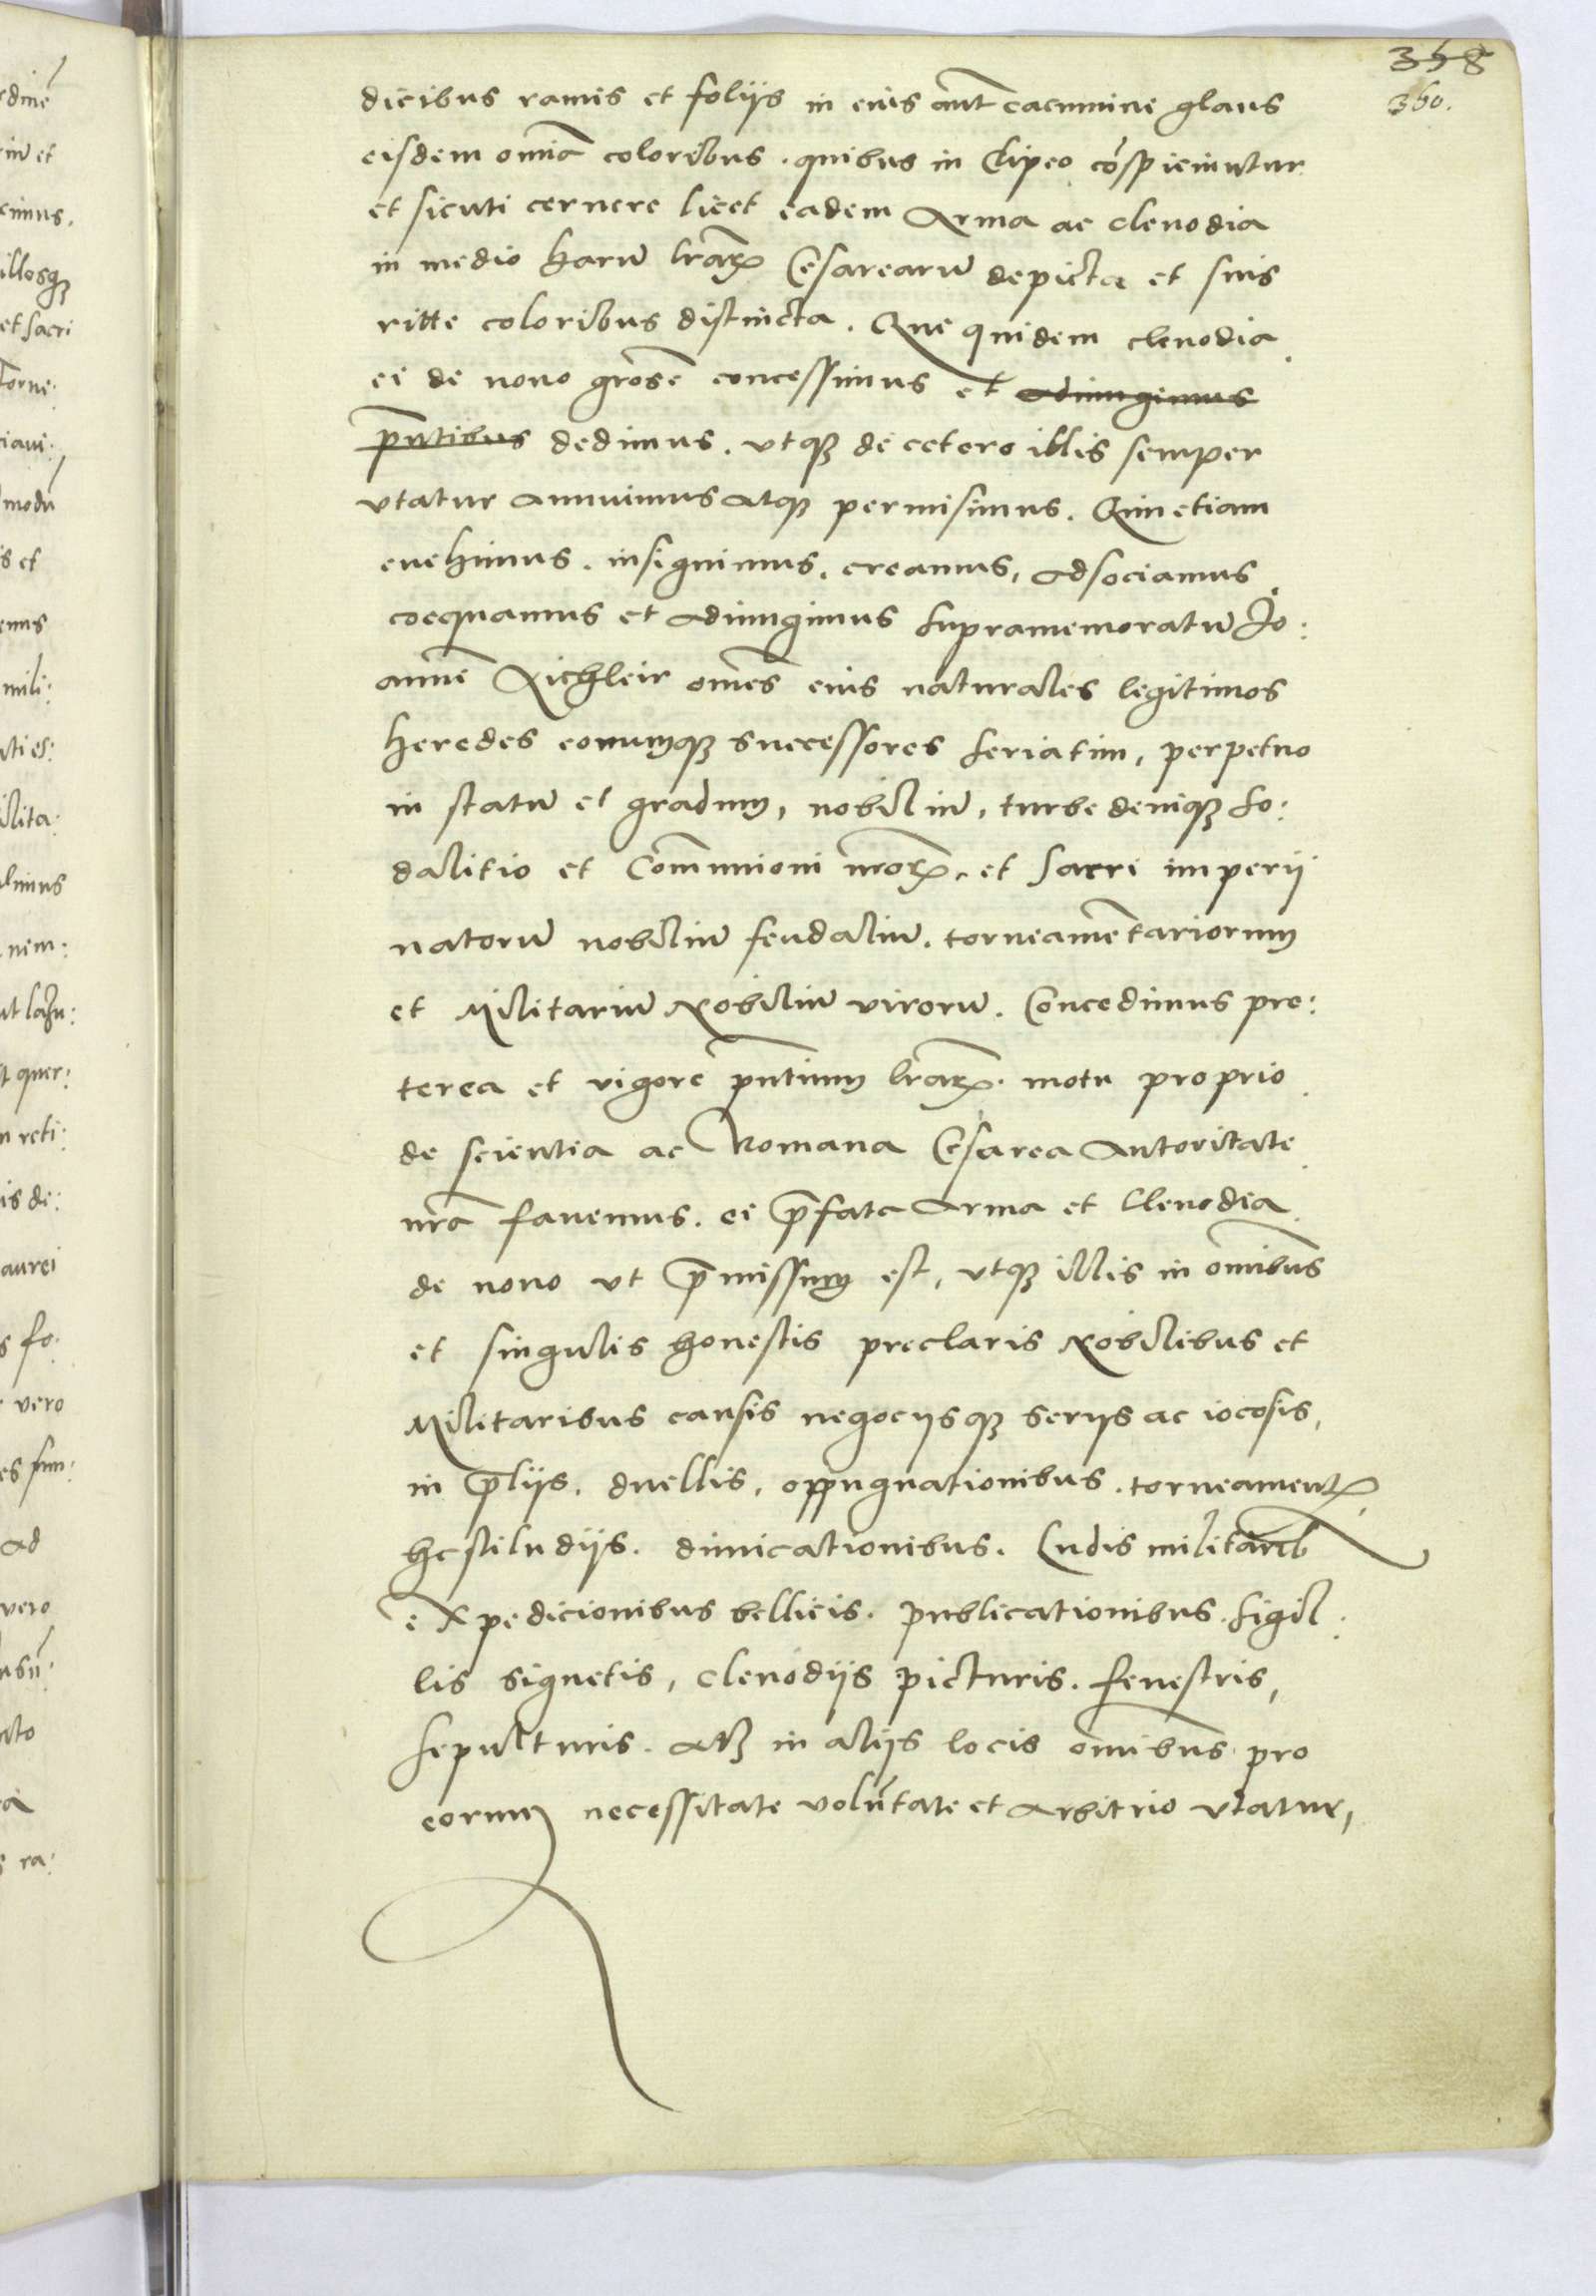 358
360.
dicibus ramis et folijs in eius aut̄ cacumine glans
eisdem omīa coloribus . quibus in Clipeo cōspiciuntur
et sicuti cernere licet eadem Arma ac clenodia
in medio harū lr̄aꝝ Cesarearū depicta et suis
ritte coloribus distincta . Que quidem clenodia
ei de nouo gr̄ose concessimus et adiungimus
pn̄tibus dedimus . vtqꝫ de cetero illis semper
vtatur annuimus atqꝫ permisimus . Quinetiam
euehimus . insignimus . creamus , adsociamus
coequamus et adiungimus supramemoratū Jo:
annē Richleir omēs eius naturales legitimos
heredes eorumqꝫ successores seriatim , perpetuo
in statū et gradum , nobiliū , turbe deniqꝫ so:
dalitio et Com̄unioni nr̄oꝝ . et Sacri imperij
natorū nobiliū feudaliū . torneamētariorum
et Militariū Nobiliū virorū . Concedimus pre:
terea et vigore pn̄tium lr̄aꝝ . motu proprio
de scientia ac Romana Cesarea Autoritate
nr̄a fauemus . ei p̄fata Arma et Clenodia
de nouo vt p̄missum est , vtqꝫ illis in omībus
et singulis honestis preclaris Nobilibus et
Militaribus causis negocijsqꝫ serijs ac iocosis ,
in p̄lijs . duellis , oppugnationibus . torneamentꝭ
hastiludijs . dimicationibus . Ludis militarib
expedicionibus bellicis . publicationibus . sigil
lis signetis , clenodijs picturis . fenestris ,
sepulturis . atqꝫ in alijs locis omībus pro
eorum necessitate volūtate et arbitrio vtatur ,
rdinē
et
cimus .
illosqꝫ
et sacri
Torne:
modū
is et
emus
mili:
ilita:
nem:
t quer:
is de:
aurei
s fo:
vero
ad
vero
s ra: